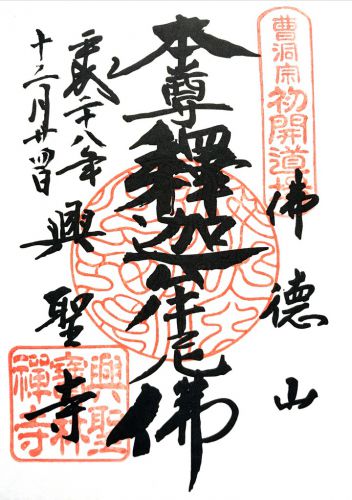 曹洞宗初開道場
佛德山
本尊釋迦牟尼佛
興聖寺
平成二十八年
十二月廿四日
興聖
寶林
禪寺